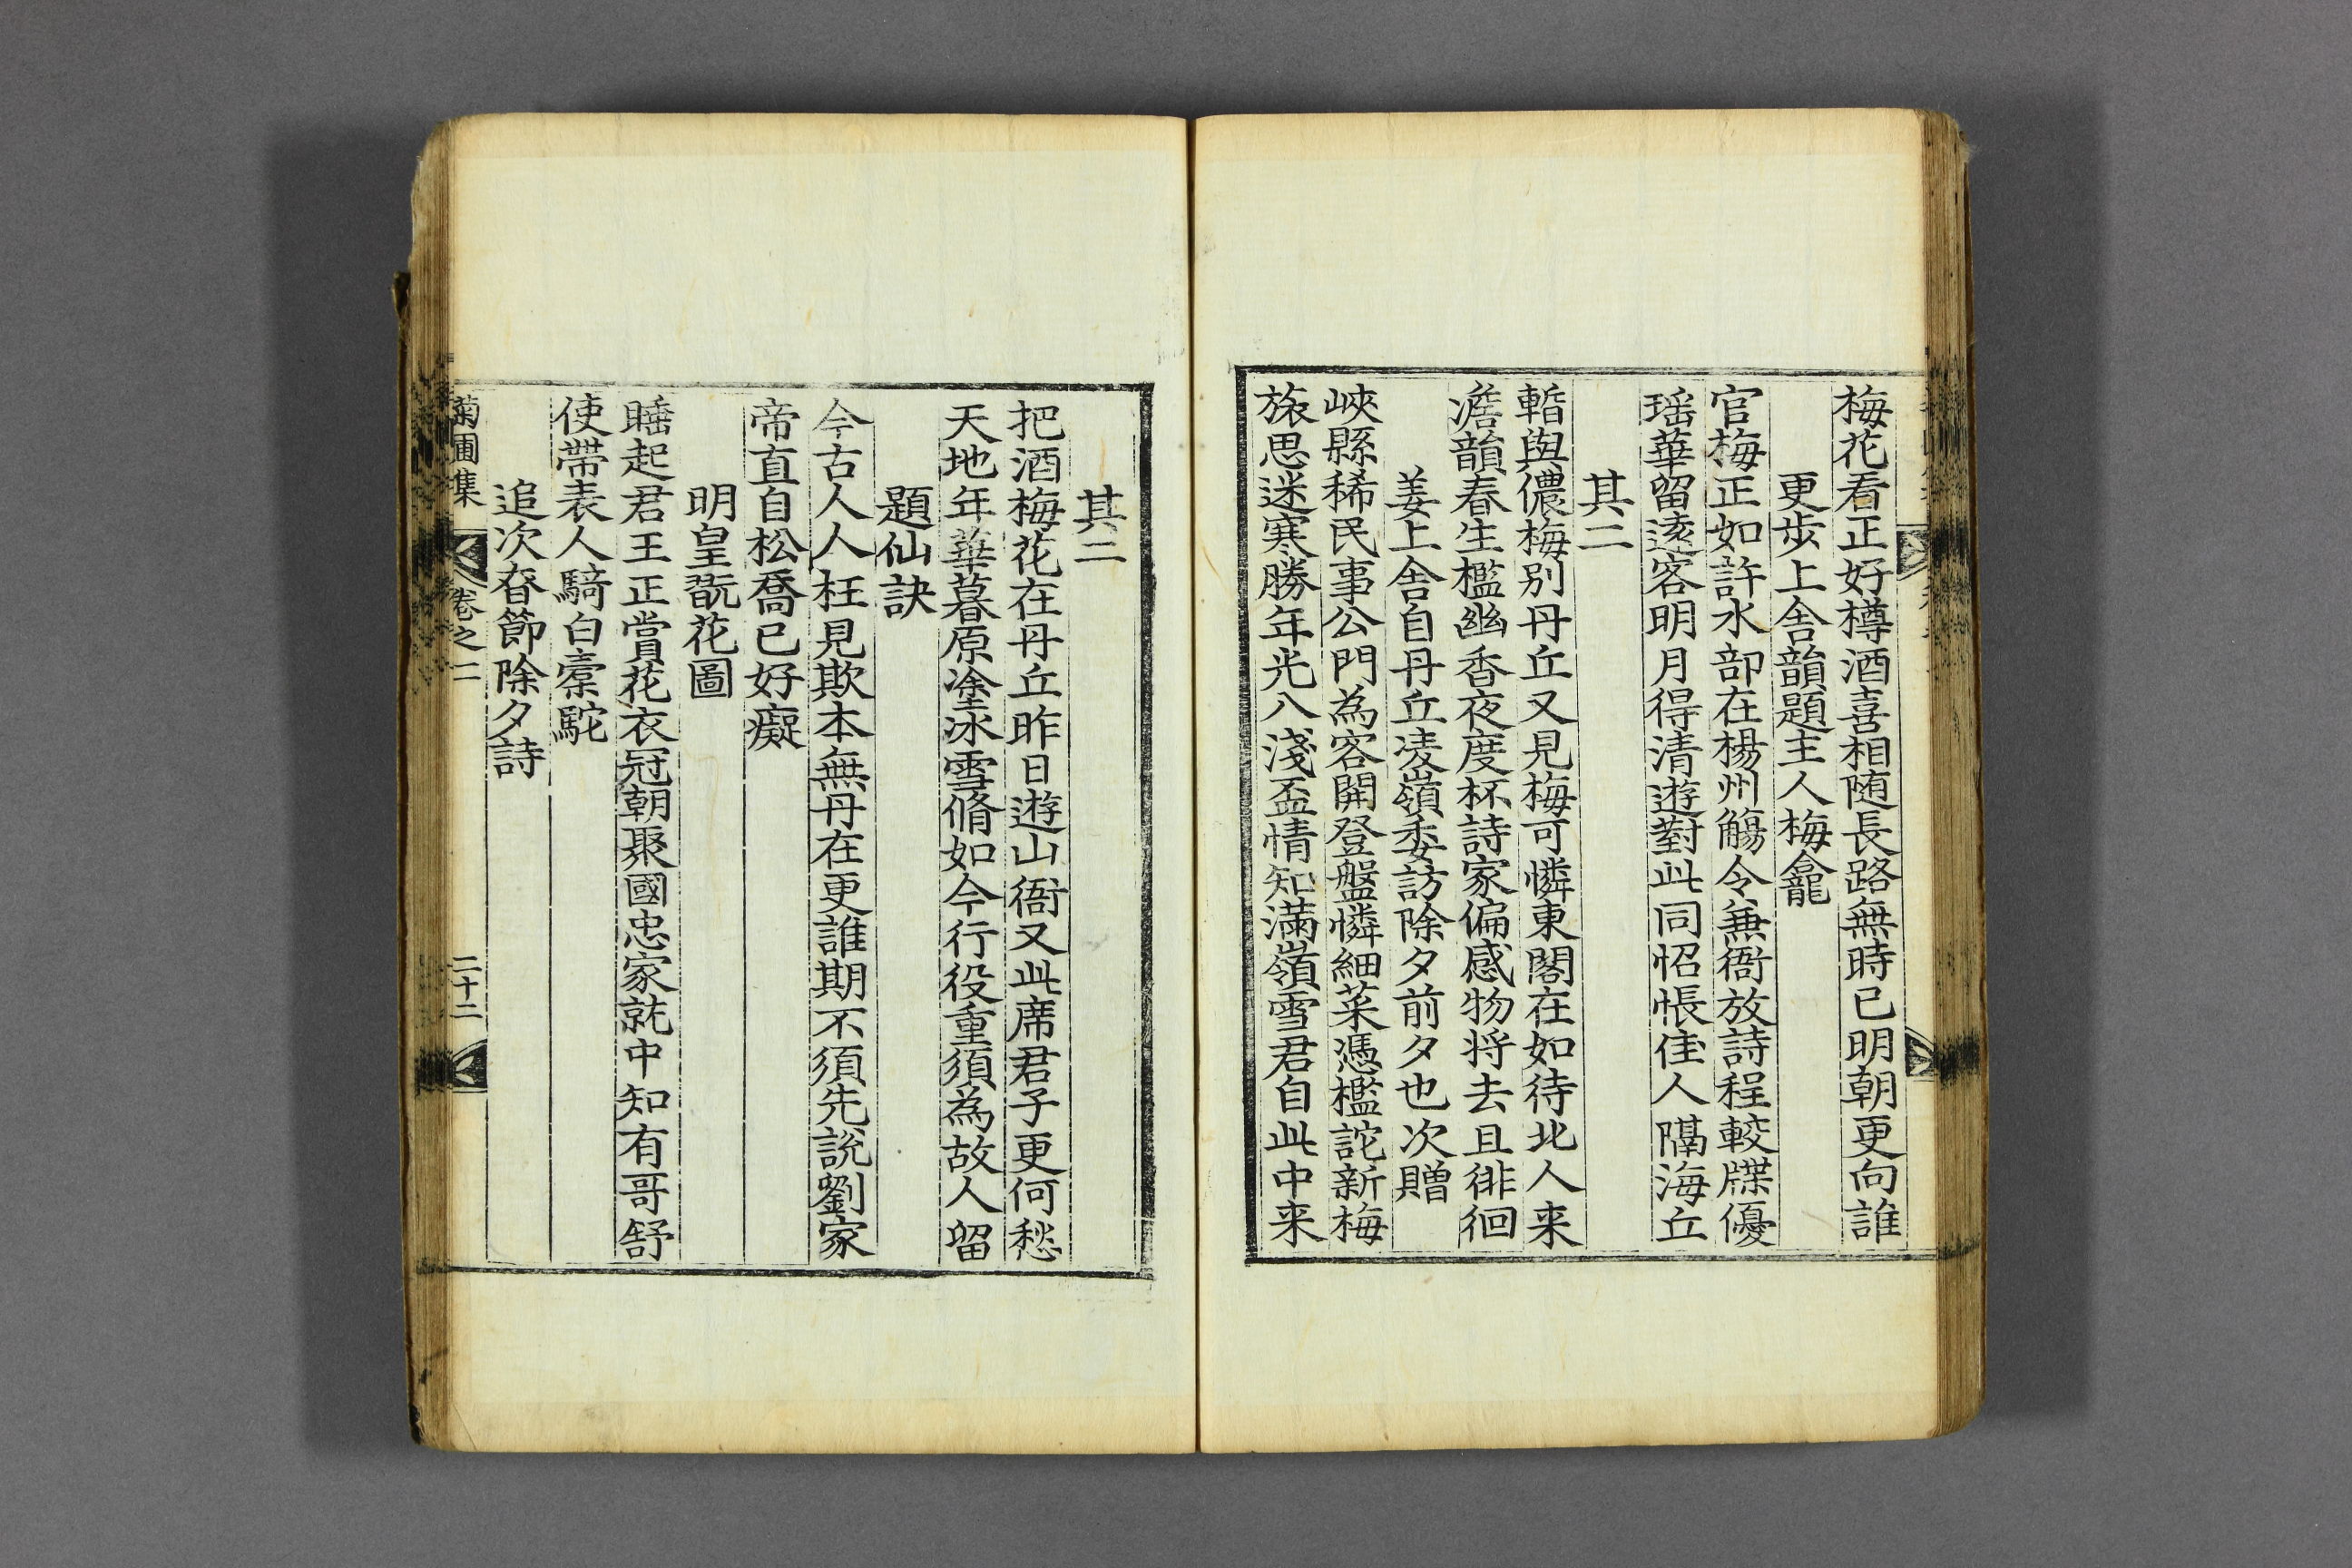 梅花看正好樽酒喜相随長路無時已明朝更向誰
更步上舍韻題主人梅龕
官梅正如許水部在楊州觴令兼衙放詩程較牒優
瑶華留遠客明月得清遊對此同怊悵佳人隔海丘
其二
暂與儂梅別丹丘又見梅可憐東閣在如待北人来
澹韻春生檻幽香夜度杯詩家偏感物将去且徘徊
姜上舍自丹丘凌嶺委訪除夕前夕也次贈
峽縣稀民事公門為客開登盤憐細菜憑檻詫新梅
旅思迷寒勝年光入淺盃情知滿嶺雪君自此中来
其二
把酒梅花在丹丘昨日遊山衙又此席君子更何愁
天地年華暮原塗冰雪脩如今行役重須為故人留
題仙訣
今古人人枉見欺本無丹在更誰期不須先說劉家
帝直自松喬已好癡
明皇翫花圖
睡起君王正賞花衣冠朝聚國忠家就中知有哥舒
使帶表人騎白橐駝
追次春節除夕詩
菊圃集
卷之二
二十二